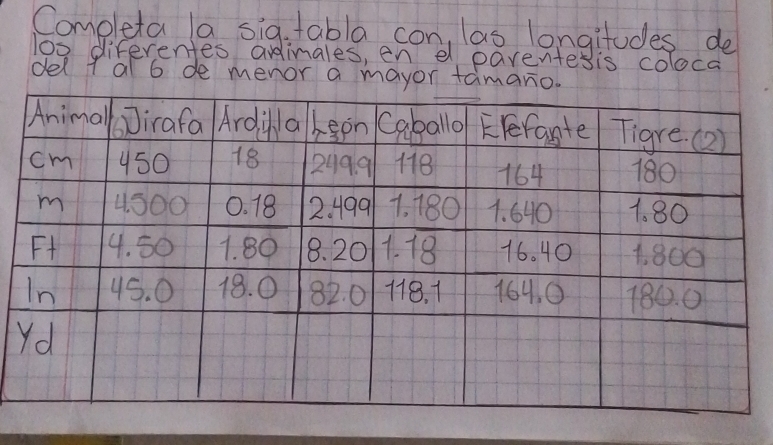 Completa la sig. tabla con las longitudes de
los diferentes animales, en el parentesis coloca
del 1 al 6 de menor a mayor tamaño.
Animal Jirafa Ardilla León Caballo Elefante Tigre. (2)
cm 450 18 249.9 118 164 180
m 4.500 0.18 2.499 1.180 1.640 1.80
Ft 4.50 1.80 8.20 1.18 16.40 1.800
In 45.0 18.0 82.0 118.1 164.0 180.0
Yd